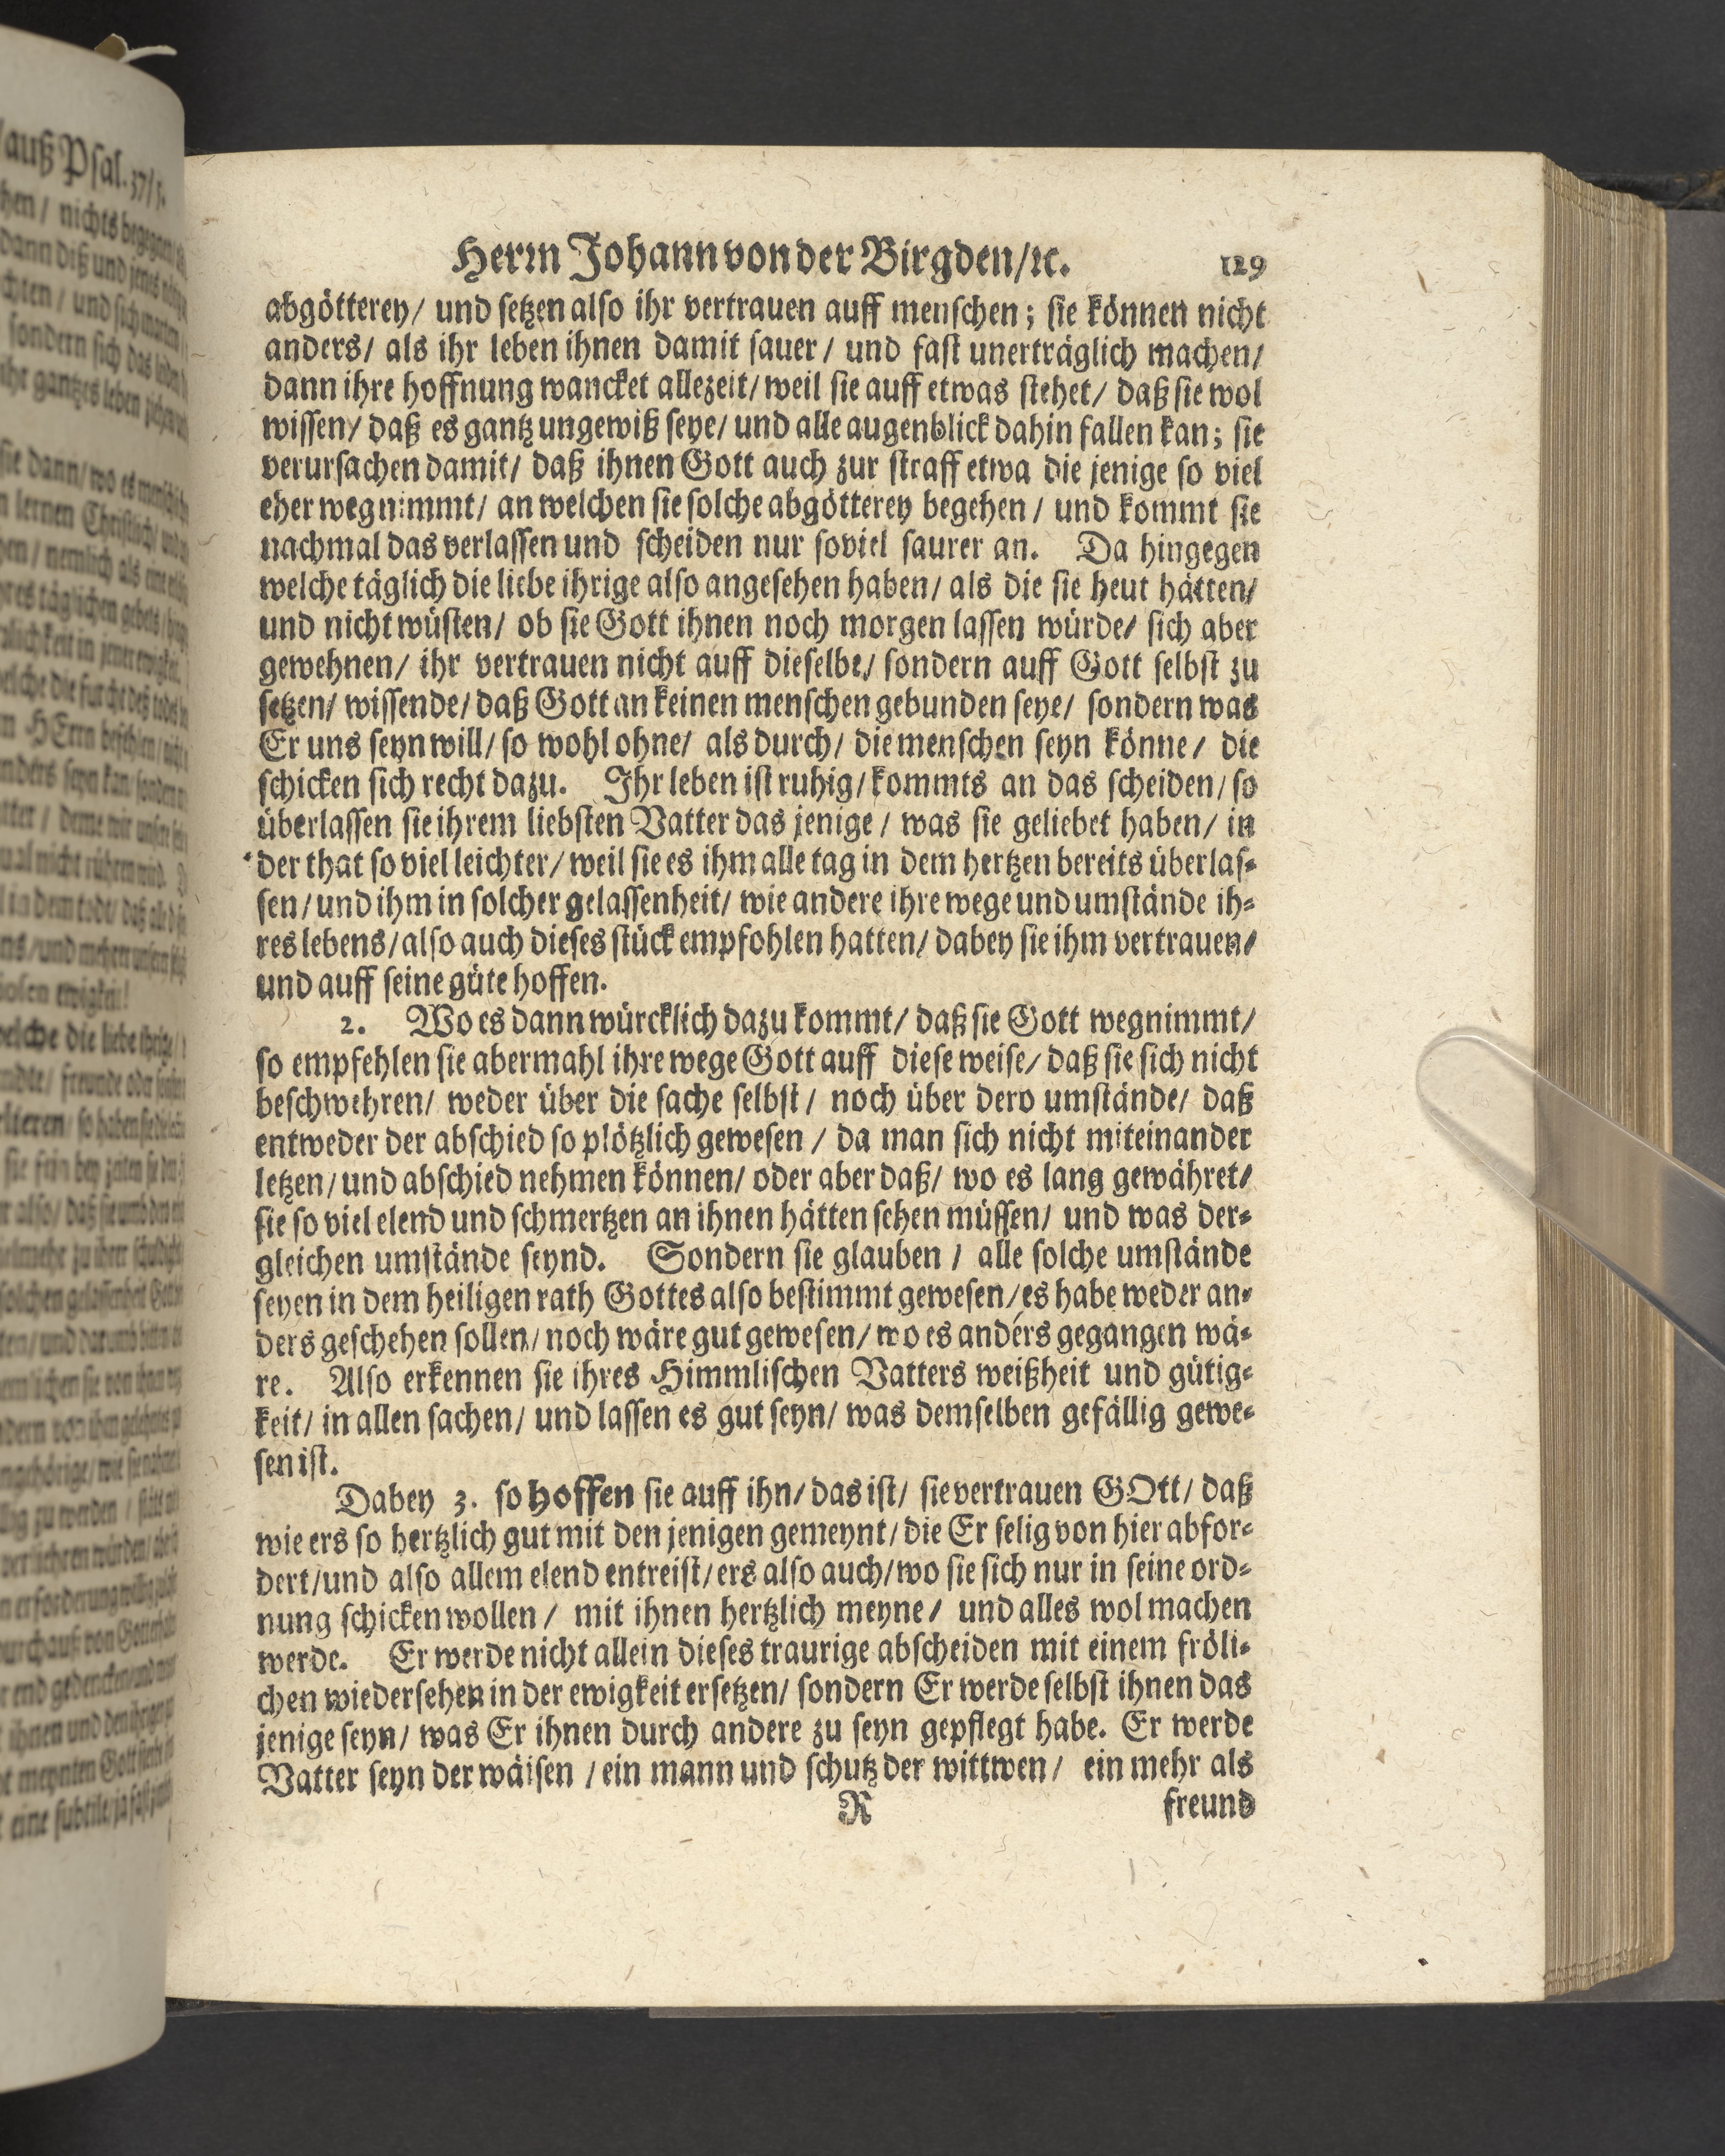 auß Psal. 37/5.
Herrn Johann von der Birgden/ꝛc. 129
abgötterey/ und setzen also ihr vertrauen auff menschen; sie können nicht
anders/ als ihr leben ihnen damit sauer/ und fast unerträglich machen/
dann ihre hoffnung wancket allezeit/ weil sie auff etwas stehet/ daß sie wol
wissen/ daß es gantz ungewiß seye/ und alle augenblick dahin fallen kan; sie
verursachen damit/ daß ihnen Gott auch zur straff etwa die jenige so viel
eher wegnimmt/ an welchen sie solche abgötterey begehen/ und kommt sie
nachmal das verlassen und scheiden nur soviel saurer an. Da hingegen
welche täglich die liebe ihrige also angesehen haben/ als die sie heut hätten/
und nicht wüsten/ ob sie Gott ihnen noch morgen lassen würde/ sich aber
gewehnen/ ihr vertrauen nicht auff dieselbe/ sondern auff Gott selbst zu
setzen/ wissende/ daß Gott an keinen menschen gebunden seye/ sondern was
Er uns seyn will/ so wohl ohne/ als durch/ die menschen seyn könne/ die
schicken sich recht dazu. Ihr leben ist ruhig/ kommts an das scheiden/ so
überlassen sie ihrem liebsten Vatter das jenige/ was sie geliebet haben/ in
der that so viel leichter/ weil sie es ihm alle tag in dem hertzen bereits überlas-
sen/ und ihm in solcher gelassenheit/ wie andere ihre wege und umstände ih-
res lebens/ also auch dieses stück empfohlen hatten/ dabey sie ihm vertrauen/
und auff seine güte hoffen.
2. Wo es dann würcklich dazu kommt/ daß sie Gott wegnimmt/
so empfehlen sie abermahl ihre wege Gott auff diese weise/ daß sie sich nicht
beschwehren/ weder über die sache selbst/ noch über dero umstände/ daß
entweder der abschied so plötzlich gewesen/ da man sich nicht miteinander
letzen/ und abschied nehmen können/ oder aber daß/ wo es lang gewähret/
sie so viel elend und schmertzen an ihnen hätten sehen müssen/ und was der-
gleichen umstände seynd. Sondern sie glauben/ alle solche umstände
seyen in dem heiligen rath Gottes also bestimmt gewesen/ es habe weder an-
ders geschehen sollen/ noch wäre gut gewesen/ wo es anders gegangen wä-
re. Also erkennen sie ihres Himmlischen Vatters weißheit und gütig-
keit/ in allen sachen/ und lassen es gut seyn/ was demselben gefällig gewe-
sen ist.
Dabey 3. so hoffen sie auff ihn/ das ist/ sie vertrauen GOtt/ daß
wie ers so hertzlich gut mit den jenigen gemeynt/ die Er selig von hier abfor-
dert/ und also allem elend entreist/ ers also auch/ wo sie sich nur in seine ord-
nung schicken wollen/ mit ihnen hertzlich meyne/ und alles wol machen
werde. Er werde nicht allein dieses traurige abscheiden mit einem fröli-
chen wiedersehen in der ewigkeit ersetzen/ sondern Er werde selbst ihnen das
jenige seyn/ was Er ihnen durch andere zu seyn gepflegt habe. Er werde
Vatter seyn der wäisen/ ein mann und schutz der wittwen/ ein mehr als
R freund